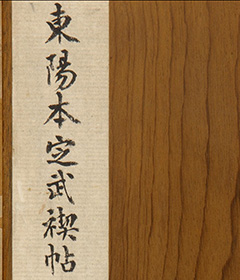 東陽本定武禊帖